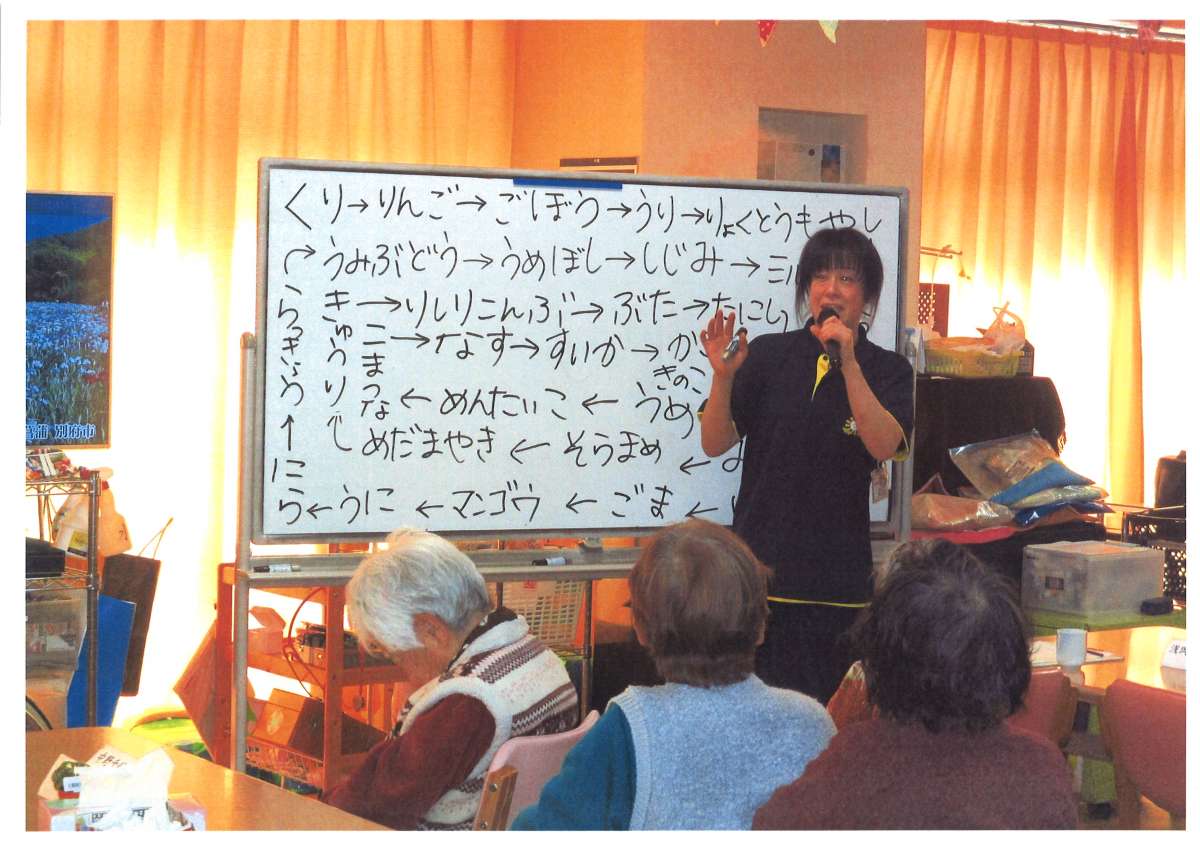 くり→りんご→ごぼう→うり→りょくとうもやし
うみぶどう→うめぼし→しじみ→ミル
き→りしりこんぶ→ぶた→たにし
こまつな→なす→すいか→か
きのこ
きゅうり
らっきょう
←めんたいこ←うめ
めだまやき←そらまめ←
↑
にら←うに←マンゴウ←ごま←
別府市